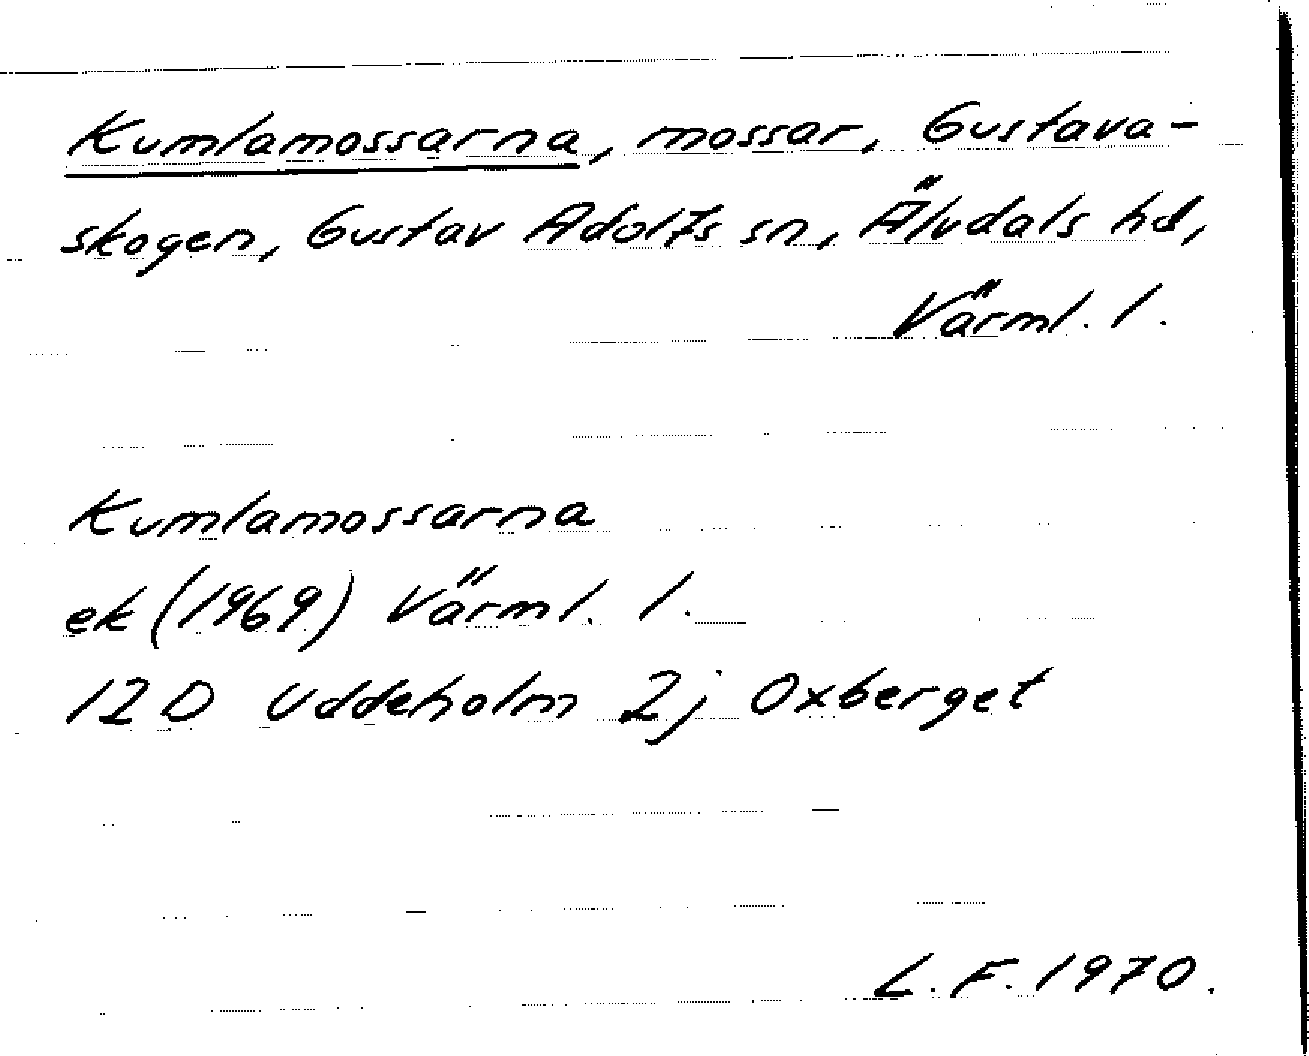 Kumlamossarna, mossar, Gustava-
skogen, Gustav Adolfs sn, Älvdals hd,
Värml. l.
Kumlamossarna
ek (1969) Värml. l.
12 D Uddeholm 2j Oxberget
L. F. 1970.